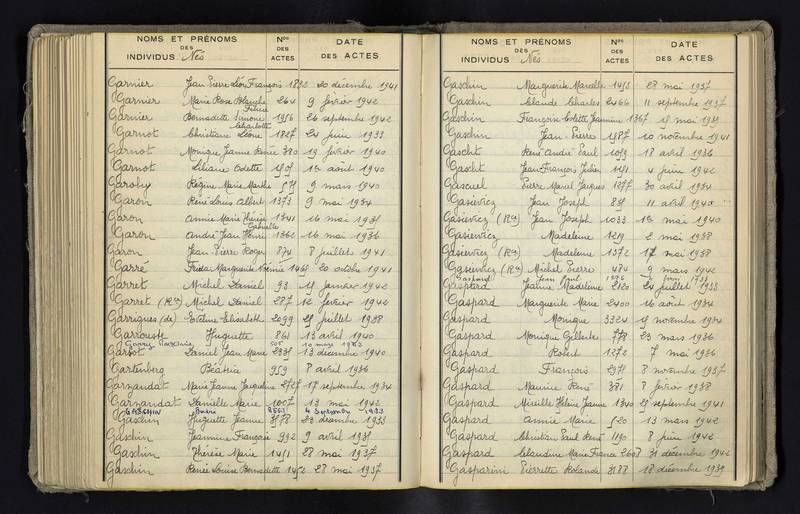 NOMS ET PRÉNOMS DES INDIVIDUS Nés Nos DES ACTES DATE DES ACTES
Garnier Jean Pierre Léon François 1832 20 décembre 1941
Garnier Marie Rose Blanche 264 9 février 1942
Garnier Bernadette Simone 1956 26 septembre 1942
Charlotte
Garnot Christiane Léone 1827 24 juin 1933
Garnot Monique Jeanne Renée 380 19 février 1940
Garnot Liliane Odette 1er août 1940
Garohy Régine Marie Marthe 9 mars 1940
Garon René Louis Albert 1373 9 mai 1934
Garon Annie Marie Thérèse 1341 16 mai
Gabrielle
Garon André Jean Henri 1360 16 mai 1936
Garon Jean Pierre Roger 874 8 juillet 1941
Garré Frida Marguerite 20 octobre 1941
Garret Michel Daniel 93 janvier 1942
Garret (Ron) Michel Daniel 287 12 février 1942
Garrigues (de) Evelyne Elisabeth 2099 juillet 1938
Garrouste Huguette 861 13 avril 1940
10 mars
Garsot Daniel Jean Marie 13 décembre 1940
Gartenberg Béatrice 959 8 avril 1936
Garzandat Marie Jeanne Jacqueline 2727 17 septembre 1934
Garzandat Danielle Marie 1007 13 mai 1942
GASCHIN 4 Septembre 1933
Gaschin Huguette Jeanne 3578 23 décembre 1933
Gaschin Jeannine Françoise 992 9 avril
Gaschin Thérèse Marie 1451 28 mai 1937
Gaschin Renée Louise Bernadette 1452 28 mai 1937
NOMS ET PRÉNOMS DES INDIVIDUS Nés Nos DES ACTES DATE DES ACTES
Gaschin Marguerite Marcelle 1453 28 mai 1937
Gaschin Claude Charles 2466 11 septembre 1937
Gaschin Françoise Colette Jeannine 1367 mai 1939
Gaschin Jean Pierre 1587 10 novembre 1941
Gascht René André Paul 1059 18 avril 1936
Gascht Jean François Julien 1151 4 juin 1942
Gascuel Pierre Marcel Jacques 1277 30 avril 1934
Gasievicz Jean Joseph 11 avril 1940
Gasievicz (Ron) Jean Joseph 1033 1er mai 1940
Gasievicz Madeleine 1219 2 mai 1938
Gasievicz (Ron) Madeleine 1372 17 mai 1938
Gasievicz (Ron) Michel Pierre 484 9 mars 1942
Gaspard Jean Paul
Gaspard Jeanne Madeleine 2120 24 juillet 1933
Gaspard Marguerite Marie 2400 16 août 1934
Gaspard Monique 3324 novembre 1934
Gaspard Monique Gilberte 778 23 mars 1936
Gaspard Robert 1272 7 mai 1936
Gaspard François 2971 8 novembre 1937
Gaspard Maurice René 381 8 février 1938
Gaspard Mireille Hélène Jeanne 1340 29 septembre 1941
Gaspard Annie Marie 520 13 mars 1942
Gaspard Christian Paul René 1190 8 juin 1942
Gaspard Claudine Marie France 2608 31 décembre 1942
Gasparini Pierrette Rolande 3188 18 décembre 1939